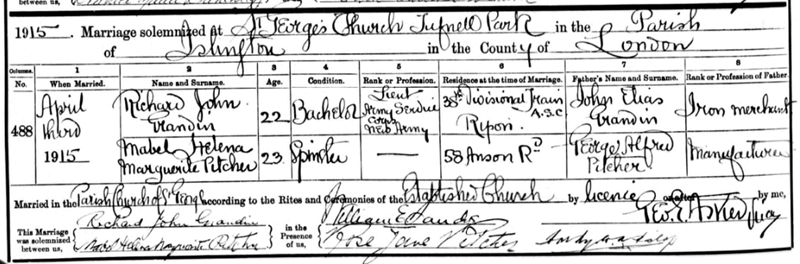 1915. Marriage solemnized at St George's Church Tufnell Park in the Parish
of Islington in the County of London
Columns. 1 2 3 4 5 6 7 8
No. When Married. Name and Surname. Age. Condition. Rank or Profession. Residence at the time of Marriage. Father's Name and Surname. Rank or Profession of Father.
488 April third 1915 Richard John Grandin 22 Bachelor Lieut Army Service Corps New Army 38th Divisional Train A.S.C Ripon. John Elias Grandin Iron merchant
Mabel Helena Marguerite Pitcher 23 Spinster — 58 Anson Rd George Alfred Pitcher Manufacturer
Married in the Parish Church of St George according to the Rites and Ceremonies of the Established Church by licence or after by me,
This Marriage was solemnized between us, Richard John Grandin in the Presence of us,
Mabel Helena Marguerite Pitcher Rose Jane Pitcher